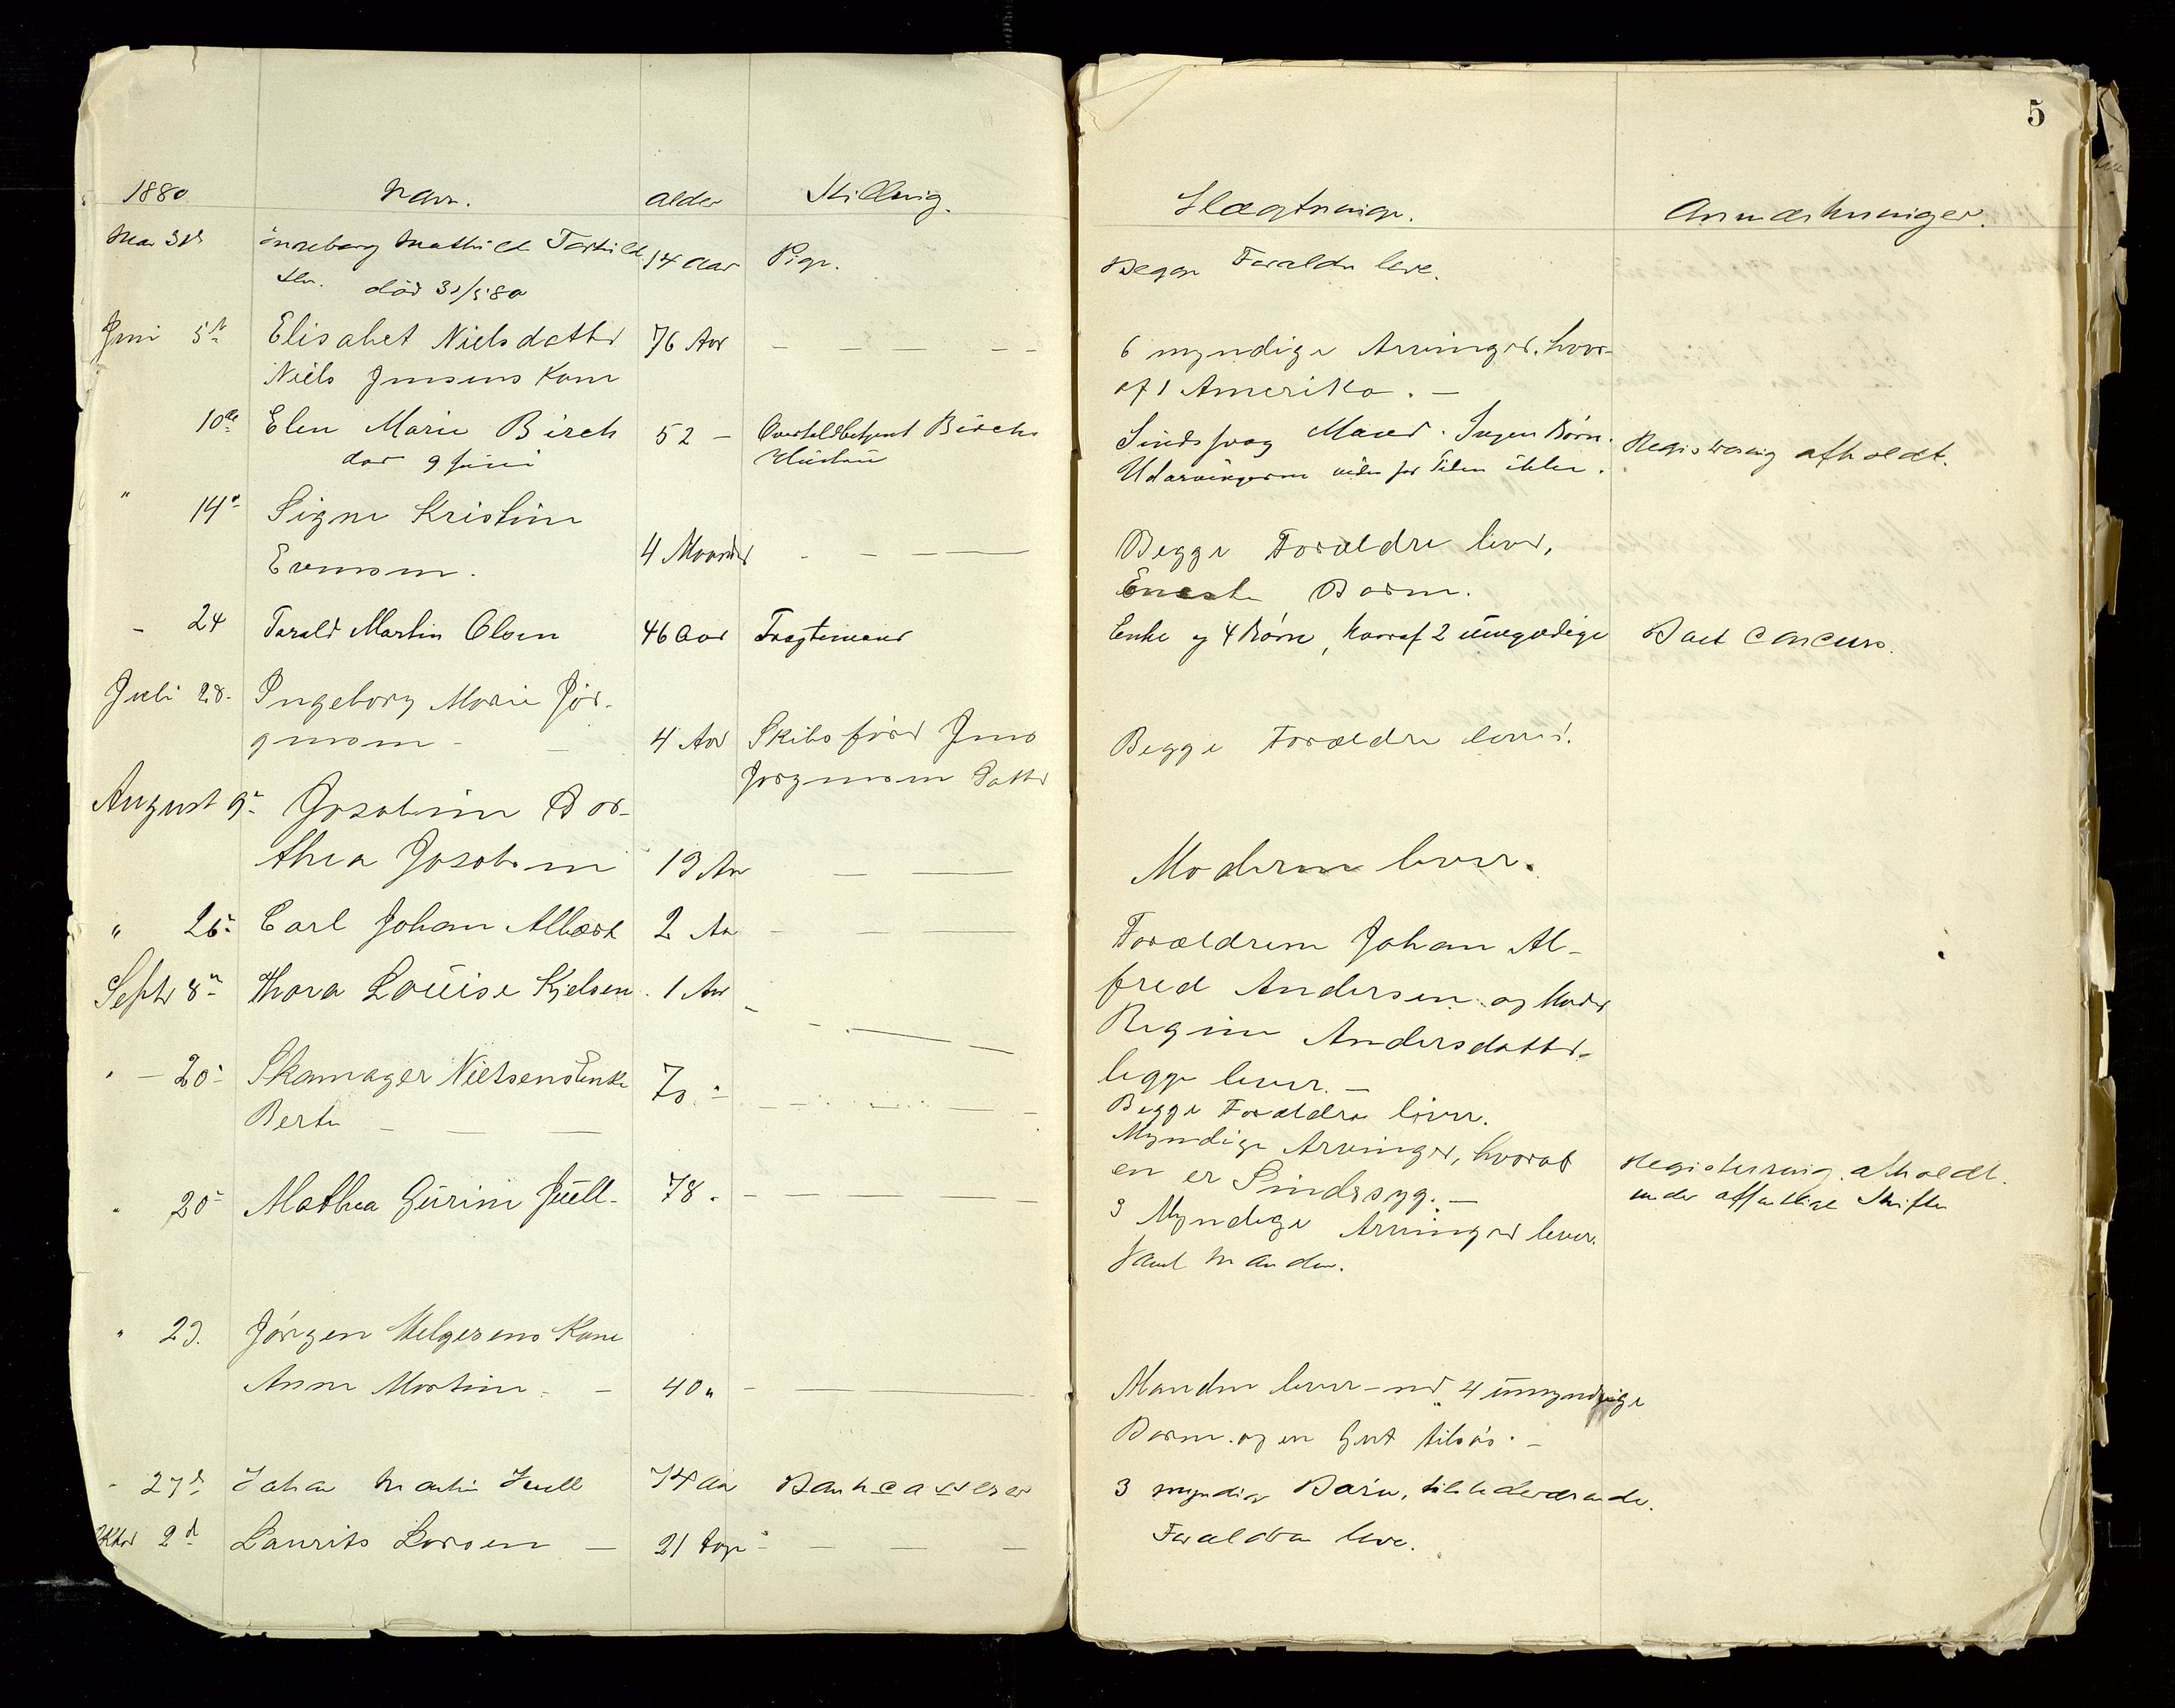 5
1880 Navn. Alder Stilling. Slægtninge. Anmærkninger.
Mai 31 Ingeborg Mathilde 14 Aar Pige. Begge Forældre leve.
død 31/5 80
Juni 5te Elisabet Nielsdatter 76 Aar — — — — 6 myndige Arvinger, hvor-
Niels Jensens Kone af 1 Amerika. —
10de Elen Marie Birch 52 — Overtoldbetjent Birchs Sindssvag Mand. Ingen Børn. Registrering afholdt.
dør 9 Juni Hustru Udarvingerne vides for Tiden ikke.
" 14de Signe Kristine
Evensen. 4 Maaneder - — — Begge Forældre lever,
Eneste Barn.
- 24 Tarald Martin Olsen 46 Aar Fragtemand Enke og 4 Børn, hvoraf 2 umyndige Boet Concurs.
Juli 28. Ingeborg Marie Jør-
gensen - — 4 Aar Skibsfører Jens Begge Forældre lever.
Jørgensens Datter
August 9de Josefine Dor-
thea 19 Aar — — Moderen lever.
" 26de Carl Johan Albert 2 Aar - — — Forældrene Johan Al-
Septr 8de Thora Louise Kjelsen. 1 Aar - - — — fred Andersen og Moder
Regine Andersdatter-
" — 20de Skamager Nielsens Enke 70. — begge lever. —
Berte - — — Begge Forældre lever.
Myndige Arvinger, hvoraf Registrering afholdt.
" 20de Mathea Gurine Juell. 78. - — — — en er Sindssyg. — under offentlige Skifte
3 Myndige Arvinger lever.
samt Manden.
" 23. Jørgen Helgesens Kone
Anne Martine. — 40 " - — Manden lever - 4 umyndige
Børn og en Gut tilsøs. —
" 27de Johan Martin Juell 74 Aar Bankcasserer 3 myndige Børn, tilstedeværende.
Oktbr 2d Laurits Larsen — 21 Dage - — — — Forældre leve.